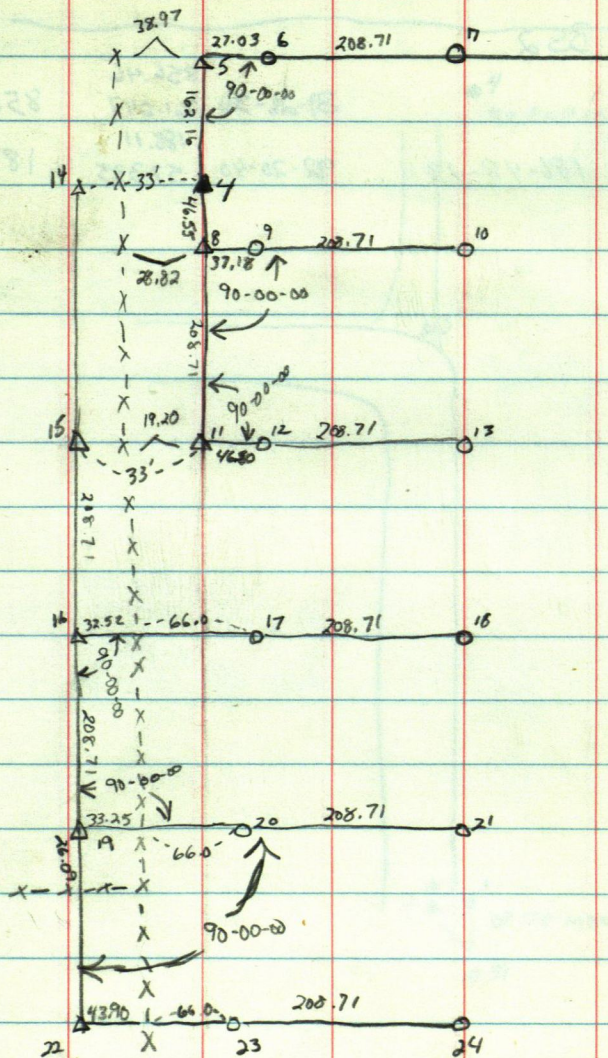 38.97
27.03 6 208.71 7
5
90-00-00
162.16
14 33' 4
46.55
8 9 208.71 10
28.82 37.18
90-00-00
208.71
90-00-00
19.20
15 11 12 208.71 13
46.80
33'
208.71
16 32.52 66.0 17 208.71 18
90-00-00
208.71
90-00-00
33.25 20 208.71 21
19 66.0
90-00-00
43.90 66.0 208.71
22 23 24